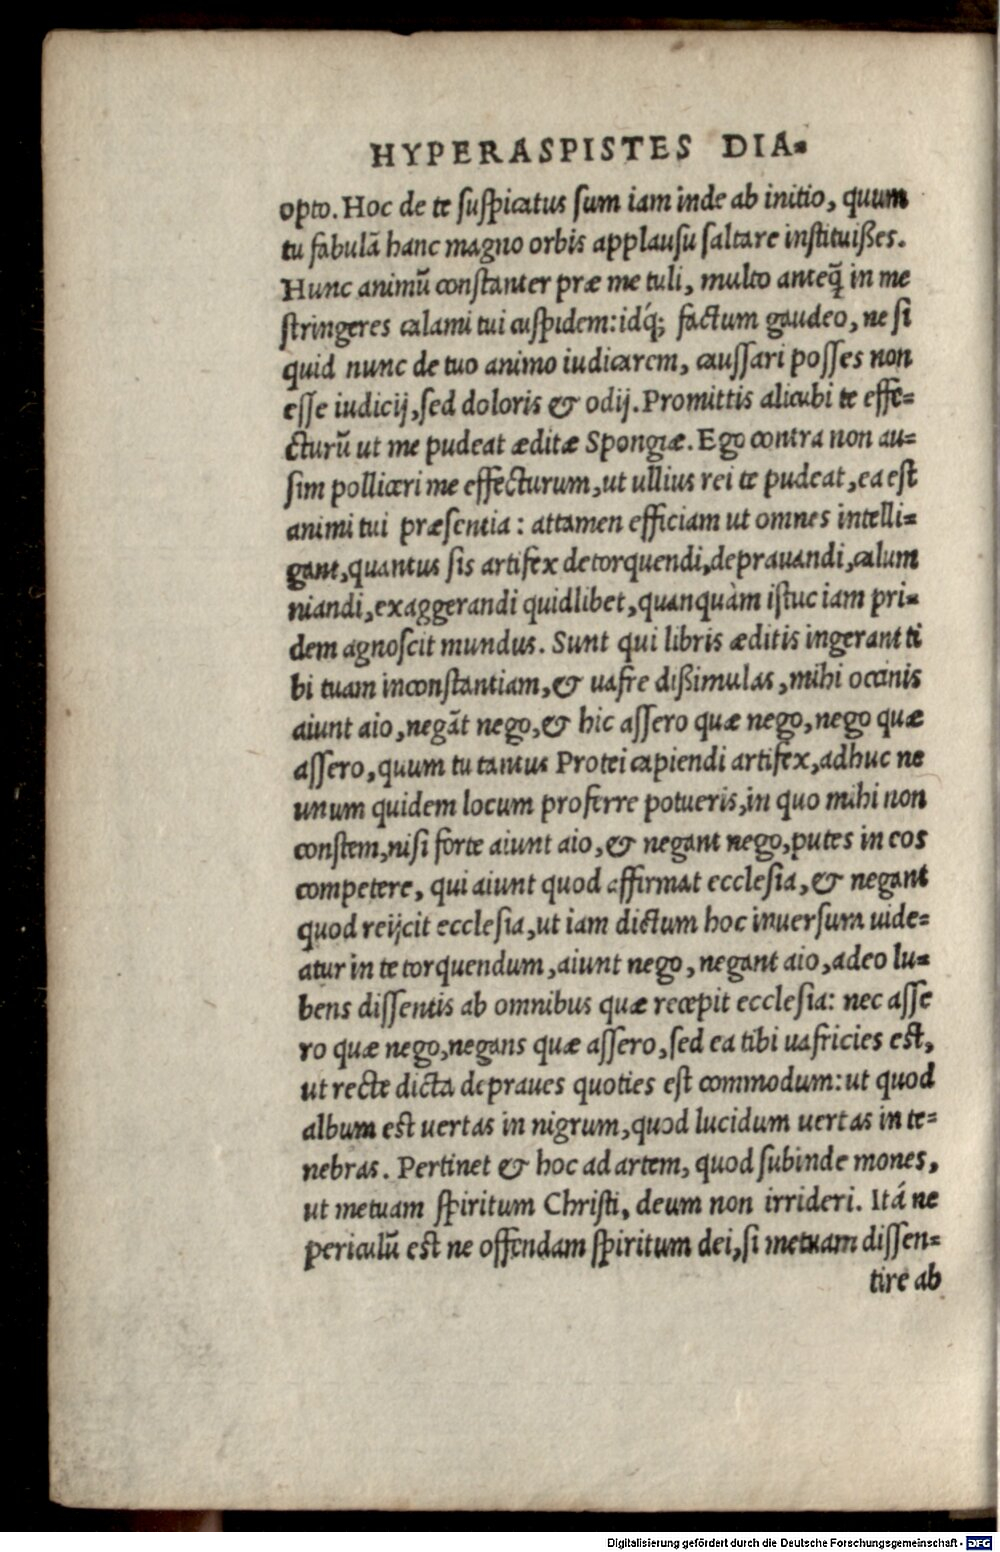 HYPERASPISTES DIA-
opto. Hoc de te ſuſpicatus ſum iam inde ab initio, quum
tu fabulā hanc magno orbis applauſu ſaltare inſtituißes.
Hunc animū conſtanter præ me tuli, multo anteq̃ in me
ſtringeres calami tui cuſpidem: idq́; factum gaudeo, ne ſi
quid nunc de tuo animo iudicarem, cauſſari poſſes non
eſſe iudicij, ſed doloris & odij. Promittis alicubi te effe-
cturū ut me pudeat æditæ Spongiæ. Ego contra non au-
ſim polliceri me effecturum, ut ullius rei te pudeat, ea eſt
animi tui præſentia: attamen efficiam ut omnes intelli-
gant, quantus ſis artifex detorquendi, deprauandi, calum
niandi, exaggerandi quidlibet, quanquàm iſtuc iam pri-
dem agnoſcit mundus. Sunt qui libris æditis ingerant ti
bi tuam inconſtantiam, & uafre dißimulas, mihi occinis
aiunt aio, negāt nego, & hic aſſero quæ nego, nego quæ
aſſero, quum tu tantus Protei capiendi artifex, adhuc ne
unum quidem locum proferre potueris, in quo mihi non
conſtem, niſi forte aiunt aio, & negant nego, putes in eos
competere, qui aiunt quod affirmat eccleſia, & negant
quod reijcit eccleſia, ut iam dictum hoc inuerſum uide-
atur in te torquendum, aiunt nego, negant aio, adeo lu-
bens diſſentis ab omnibus quæ recepit eccleſia: nec aſſe
ro quæ nego, negans quæ aſſero, ſed ea tibi uafricies eſt,
ut recte dicta depraues quoties eſt commodum: ut quod
album eſt uertas in nigrum, quod lucidum uertas in te-
nebras. Pertinet & hoc ad artem, quod ſubinde mones,
ut metuam ſpiritum Chriſti, deum non irrideri. Itá ne
periculū eſt ne offendam ſpiritum dei, ſi metuam diſſen-
tire ab
Digitalisierung gefördert durch die Deutsche Forschungsgemeinschaft - DFG